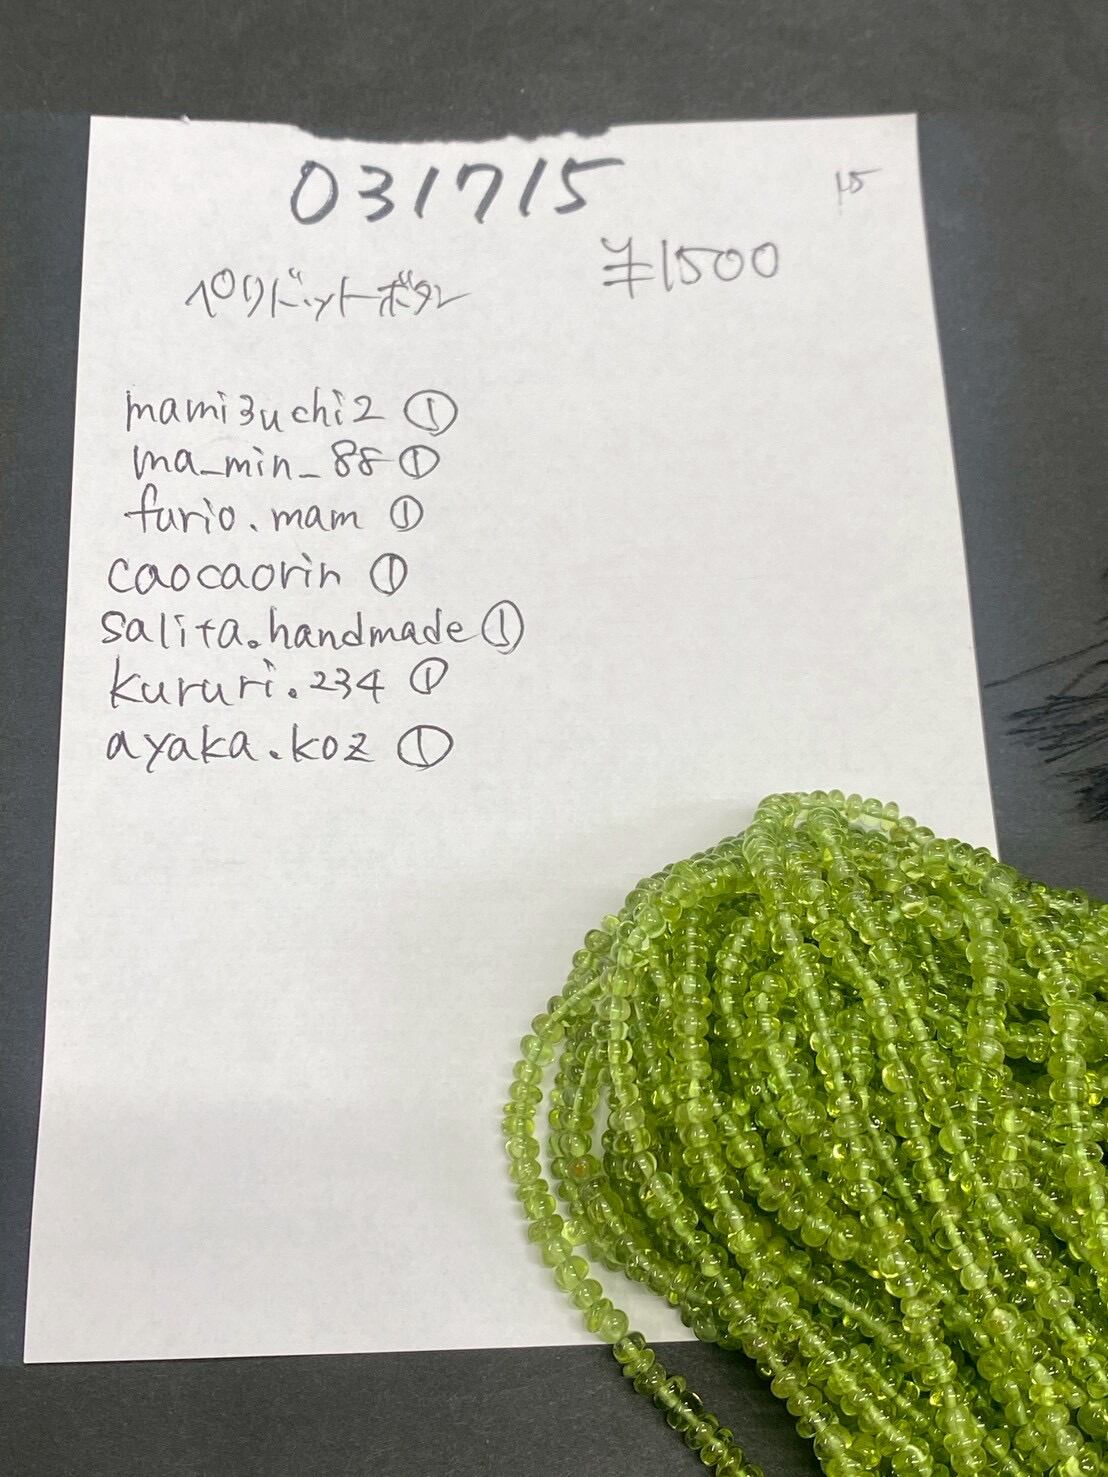 031715
15
¥1500
ペリドットボタン
mami3uchi2 ①
ma_min_88 ①
furio.mam ①
caocaorin ①
salita.handmade ①
kururi.234 ①
ayaka.koz ①